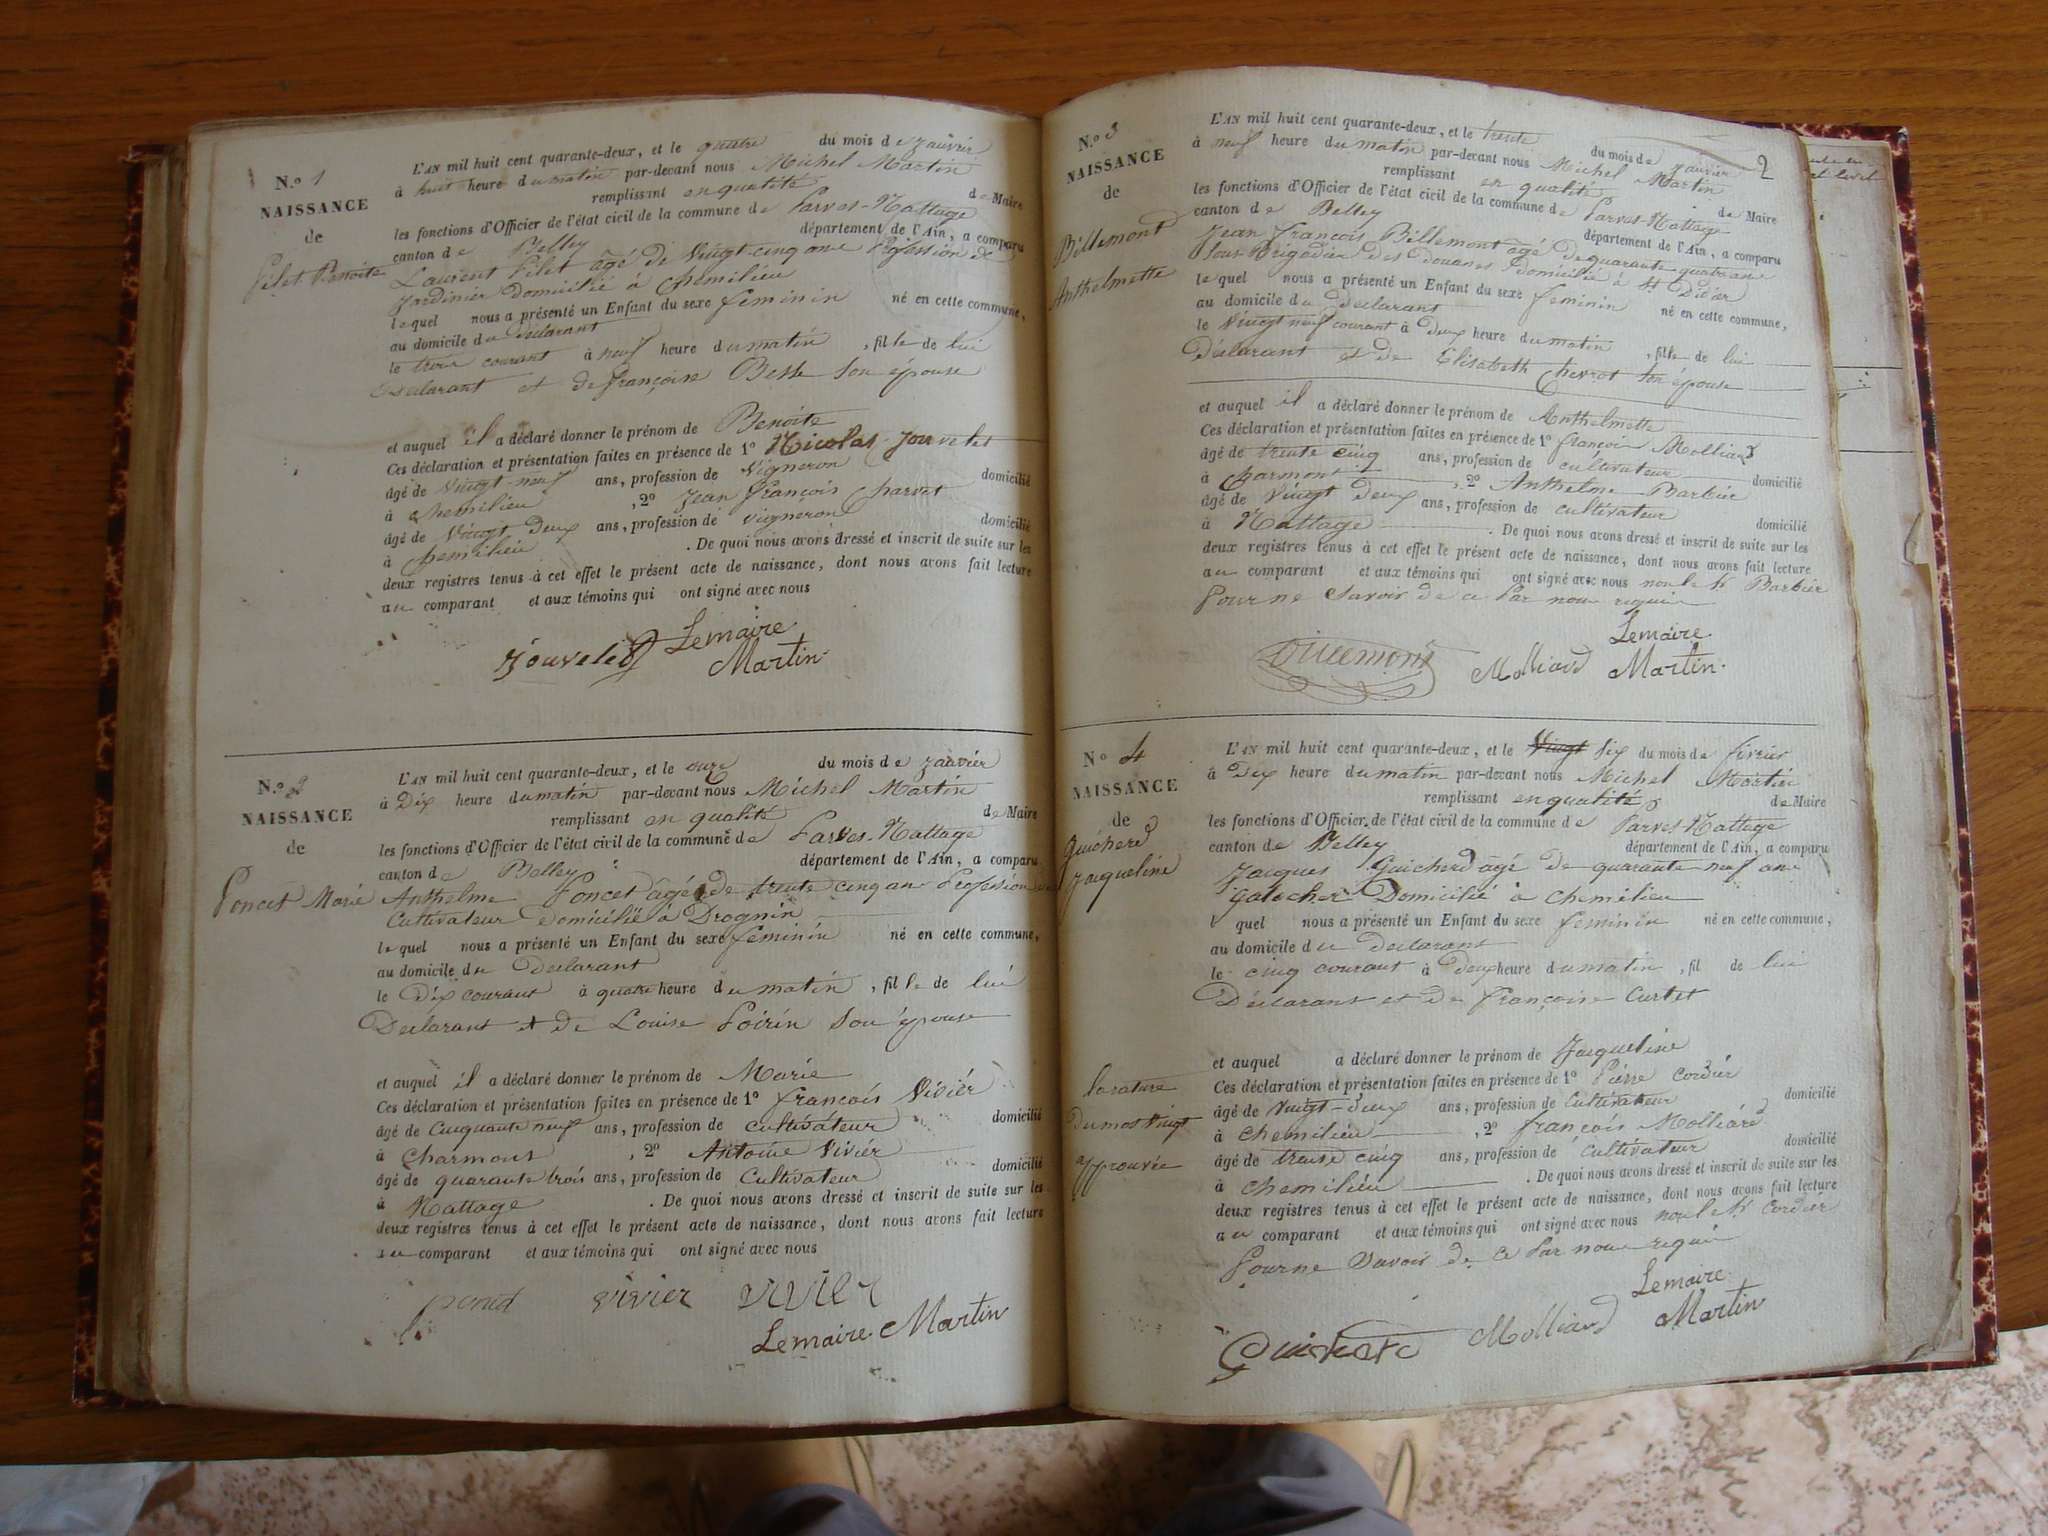 N.o 1
NAISSANCE
de
Pilet Benoite
L'AN mil huit cent quarante-deux, et le quatre du mois de janvier
à huit heure du matin par-devant nous Michel Martin
remplissant en qualité de Maire
les fonctions d'Officier de l'état civil de la commune de Parves-Nattage
canton de Belley département de l'Ain, a comparu
Laurent Pilet âgé de Vingt-cinq ans Profession de
Jardinier domicilié à Chemilieu
le quel nous a présenté un Enfant du sexe feminin né en cette commune,
au domicile du déclarant
le trois courant à neuf heure du matin, fille de lui
Déclarant et de françoise Besse son épouse
et auquel il a déclaré donner le prénom de Benoite
Ces déclaration et présentation faites en présence de 1º Nicolas Jouvelet
âgé de Vingt-neuf ans, profession de Vigneron domicilié
à Chemilieu, 2º Jean françois Charvet
âgé de Vingt deux ans, profession de vigneron domicilié
à Chemilieu. De quoi nous avons dressé et inscrit de suite sur les
deux registres tenus à cet effet le présent acte de naissance, dont nous avons fait lecture
au comparant et aux témoins qui ont signé avec nous
Jouvelet Lemaire
Martin
N.o 2
NAISSANCE
de
Poncet Marie
L'AN mil huit cent quarante-deux, et le onze du mois de janvier
à Dix heure du matin par-devant nous Michel Martin
remplissant en qualité de Maire
les fonctions d'Officier de l'état civil de la commune de Parves-Nattage
canton de Belley département de l'Ain, a comparu
Anthelme Poncet âgé de trente cinq ans Profession
Cultivateur domicilié à Drognin
le quel nous a présenté un Enfant du sexe feminin né en cette commune,
au domicile du Declarant
le Dix courant à quatre heure du matin, fille de lui
Declarant et de Louise Poirin son épouse
et auquel il a déclaré donner le prénom de Marie
Ces déclaration et présentation faites en présence de 1º françois Vivier
âgé de Cinquante neuf ans, profession de cultivateur domicilié
à Charmont, 2º Antoine Vivier
âgé de quarante trois ans, profession de Cultivateur domicilié
à Nattage. De quoi nous avons dressé et inscrit de suite sur les
deux registres tenus à cet effet le présent acte de naissance, dont nous avons fait lecture
au comparant et aux témoins qui ont signé avec nous
vivier vivier
Lemaire Martin
2
N.o 3
NAISSANCE
de
Billemont
Anthelmette
L'AN mil huit cent quarante-deux, et le trente du mois de janvier
à neuf heure du matin par-devant nous Michel Martin
remplissant en qualité de Maire
les fonctions d'Officier de l'état civil de la commune de Parves-Nattage
canton de Belley département de l'Ain, a comparu
Jean françois Billemont âgé de quarante quatre ans
Sous Brigadier des douanes domicilié à St Didier
le quel nous a présenté un Enfant du sexe feminin né en cette commune,
au domicile du declarant
le Vingt neuf courant à deux heure du matin, fille de lui
Déclarant et de Elisabeth Chevrot son épouse
et auquel il a déclaré donner le prénom de Anthelmette
Ces déclaration et présentation faites en présence de 1º françois Molliard
âgé de trente cinq ans, profession de cultivateur domicilié
à Charmont, 2º Anthelme Barbier
âgé de Vingt deux ans, profession de cultivateur domicilié
à Nattage. De quoi nous avons dressé et inscrit de suite sur les
deux registres tenus à cet effet le présent acte de naissance, dont nous avons fait lecture
au comparant et aux témoins qui ont signé avec nous non le Sr Barbier
Pour ne Savoir de ce Par nous requis
Lemaire
Billemont Molliard Martin
N.o 4
NAISSANCE
de
Guicherd
Jacqueline
L'AN mil huit cent quarante-deux, et le Vingt six du mois de fevrier
à Dix heure du matin par-devant nous Michel Martin
remplissant en qualité de Maire
les fonctions d'Officier de l'état civil de la commune de Parves-Nattage
canton de Belley département de l'Ain, a comparu
Jacques Guicherd âgé de quarante neuf ans
galocher Domicilié à Chemilieu
quel nous a présenté un Enfant du sexe feminin né en cette commune,
au domicile du declarant
le cinq courant à deux heure du matin, fil de lui
Déclarant et de françoise Curtet
et auquel a déclaré donner le prénom de Jacqueline
Ces déclaration et présentation faites en présence de 1º Pierre Cordier
âgé de Vingt-deux ans, profession de Cultivateur domicilié
à Chemilieu, 2º françois Molliard
âgé de trente cinq ans, profession de Cultivateur domicilié
à Chemilieu. De quoi nous avons dressé et inscrit de suite sur les
deux registres tenus à cet effet le présent acte de naissance, dont nous avons fait lecture
au comparant et aux témoins qui ont signé avec nous non le Sr Cordier
Pour ne Savoir de ce Par nous requis
la rature
du mot vingt
approuvée
Lemaire
Guicherd Molliard Martin